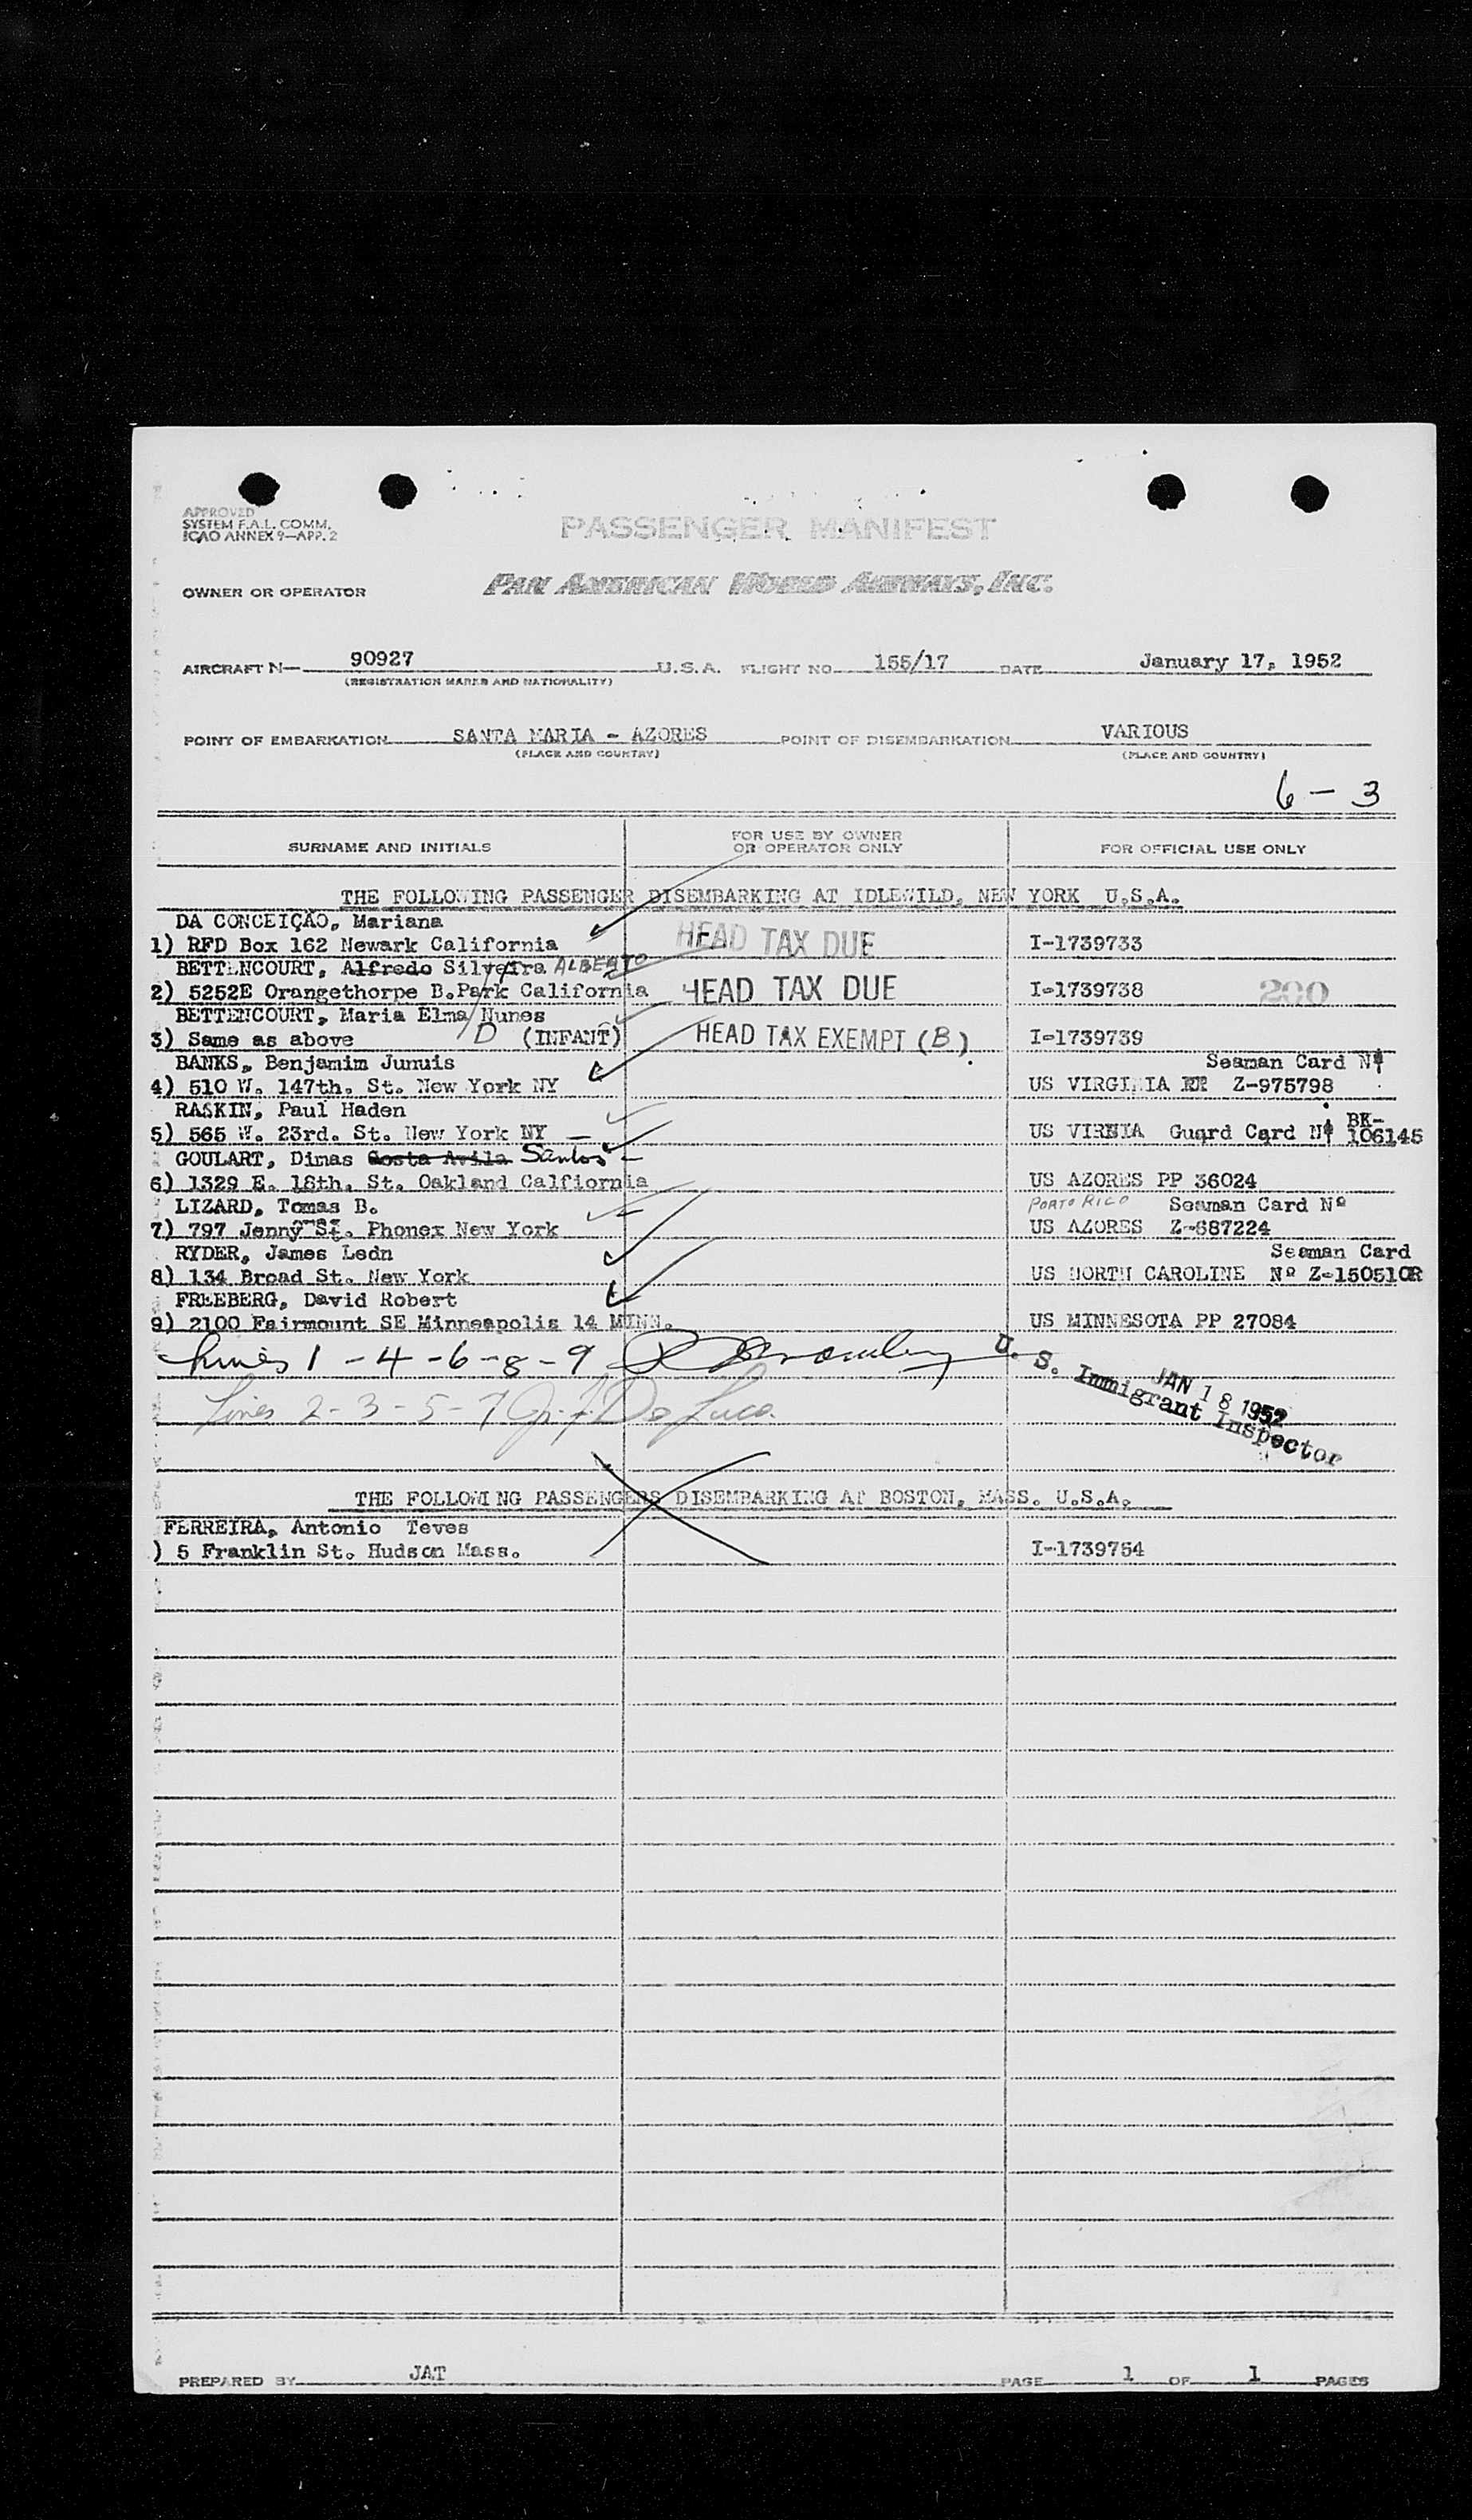 APPROVED
SYSTEM F.A.L. COMM.
ICAO ANNEX 9—APP. 2
PASSENGER MANIFEST
OWNER OR OPERATOR PAN AMERICAN WORLD AIRWAYS, INC.
AIRCRAFT N— 90927 U.S.A. FLIGHT NO. 155/17 DATE January 17, 1952
(REGISTRATION MARKS AND NATIONALITY)
POINT OF EMBARKATION SANTA MARIA - AZORES POINT OF DISEMBARKATION VARIOUS
(PLACE AND COUNTRY) (PLACE AND COUNTRY)
6 - 3
SURNAME AND INITIALS FOR USE BY OWNER OR OPERATOR ONLY FOR OFFICIAL USE ONLY
THE FOLLOWING PASSENGER DISEMBARKING AT IDLEWILD, NEW YORK U.S.A.
DA CONCEIÇÃO, Mariana
1) RFD Box 162 Newark California HEAD TAX DUE I-1739733
BETTENCOURT, Alfredo Silveira ALBERTO
2) 5252E Orangethorpe B.Park California HEAD TAX DUE I-1739738 200
BETTENCOURT, Maria Elma Nunes
3) Same as above D (INFANT) HEAD TAX EXEMPT (B) I-1739739
BANKS, Benjamim Junuis Seaman Card Nº
4) 510 W. 147th. St. New York NY US VIRGINIA Z-975798
RASKIN, Paul Haden BK-
5) 565 W. 23rd. St. New York NY US VIRNIA Guard Card Nº 106145
GOULART, Dimas Costa Avila Santos
6) 1329 E. 18th. St. Oakland Calfiornia US AZORES PP 36024
LIZARD, Tomas B. PORTO RICO Seaman Card Nº
7) 797 Jenny St. Phonex New York US AZORES Z-687224
RYDER, James Ledn Seaman Card
8) 134 Broad St. New York US NORTH CAROLINE Nº Z-150510R
FREEBERG, David Robert
9) 2100 Fairmount SE Minneapolis 14 MINN. US MINNESOTA PP 27084
Lines 1 - 4 - 6 - 8 - 9
U. S. Immigrant Inspector
JAN 18 1952
Lines 2 - 3 - 5 - 7 De Luca
THE FOLLOWING PASSENGERS DISEMBARKING AT BOSTON, MASS. U.S.A.
FERREIRA, Antonio Teves
) 5 Franklin St. Hudson Mass. I-1739754
PREPARED BY JAT PAGE 1 OF 1 PAGES